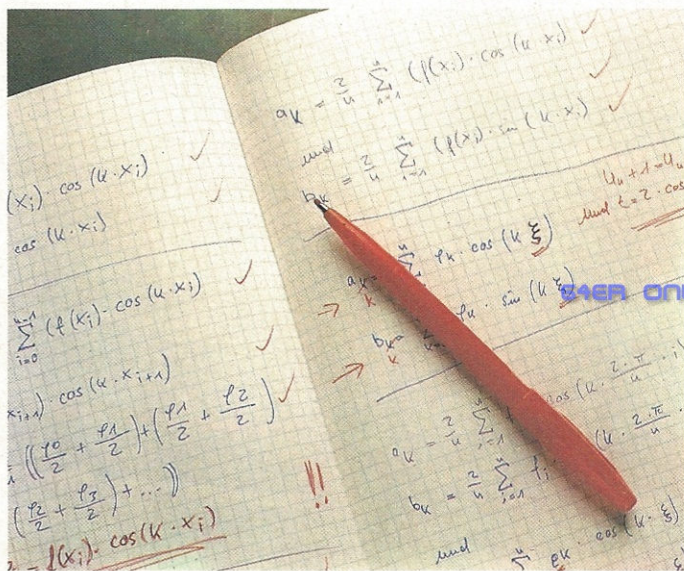 (x_i) · cos (k · x_i)
cos (k · x_i)
n-1 ∑ i=0 (f(x_i) · cos (k · x_i)
x_{i+1}) · cos (k · x_{i+1})
((φ0/2 + φ1/2) + (φ1/2 + φ2/2)
(φ2/2 + φ3/2) + ...))
f(x_i) · cos (k · x_i)
!!
a_k = 2/n n ∑ i=1 (f(x_i) · cos (k · x_i)
und
b_k = 2/n n ∑ i=1 (f(x_i) · sin (k · x_i)
U_n + 1 = U_n
und t = 2 · cos
→ a_k = n ∑ φk · cos (k ξ)
k
→ b_k = φk · sin (k ξ)
k
E4ER ON
a_k = 2/n n ∑ i=1 cos (k · 2·π/n · i)
b_k = 2/n n ∑ i=1 f_i (k · 2·π/n ·
und
n φk · cos (k · ξ)